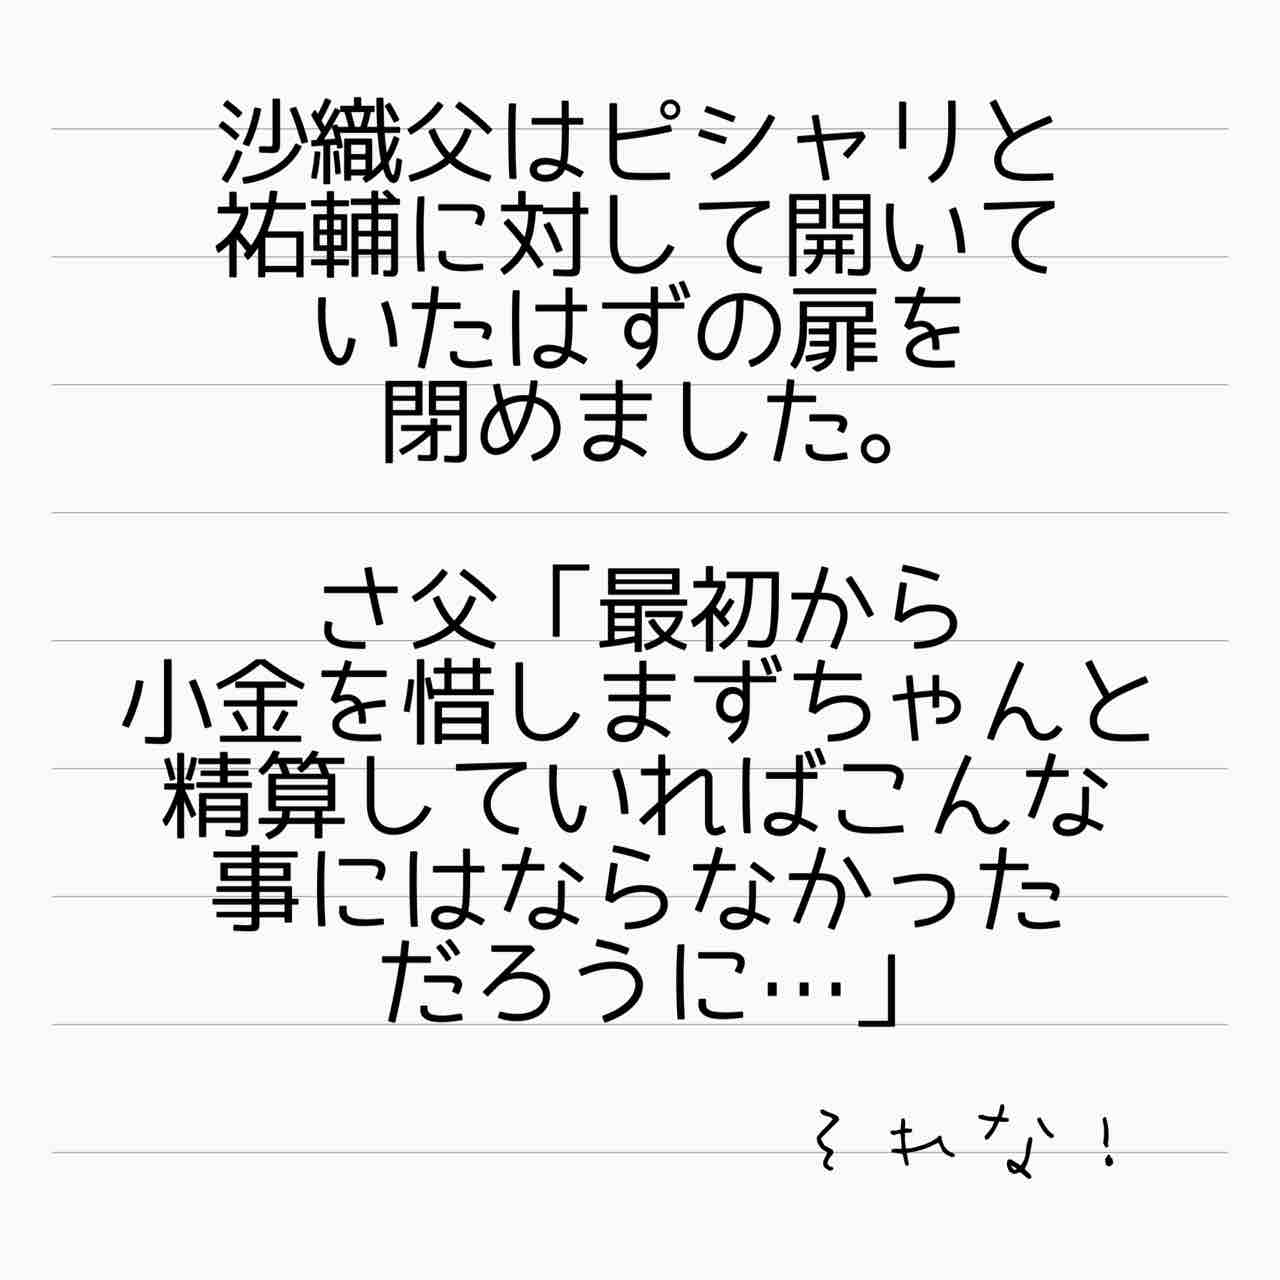 沙織父はピシャリと
祐輔に対して開いて
いたはずの扉を
閉めました。
さ父「最初から
小金を惜しまずちゃんと
精算していればこんな
事にはならなかった
だろうに…」
それな!